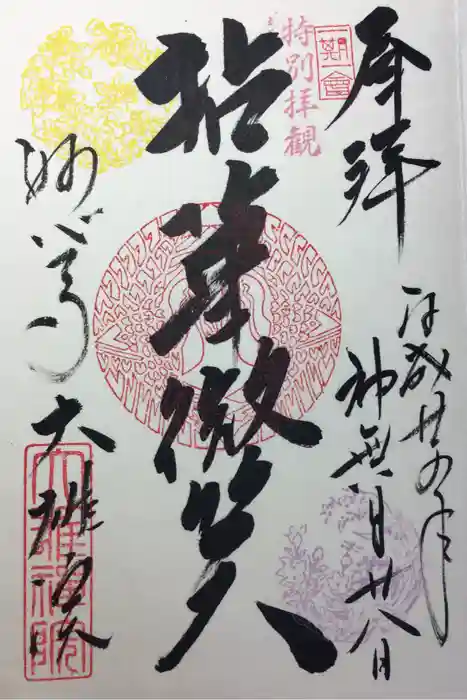 奉拝
平成廿九年
神無月廿八日
一期
一會
特別拝観
拈華微笑
妙心寺
大雄院
大雄禅院